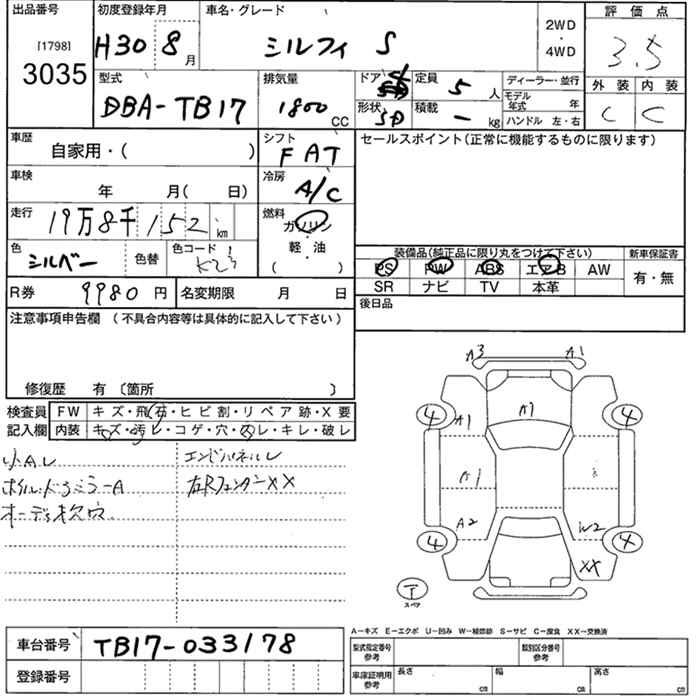 出品番号 初度登録年月 車名・グレード 評価点
[1798] 3035
H30 8月 シルフィ S 2WD・4WD 3.5
外装 内装
C C
型式 排気量 ドア 定員 ディーラー・並行
DBA-TB17 1800 CC 4 5人
形状 積載 モデル年式 年
SD - kg ハンドル 左・右
車歴 シフト セールスポイント(正常に機能するものに限ります)
自家用・( ) FAT
車検 冷房
年 月( 日) A/C
走行 燃料
19万8千152km ガソリン・軽・油 ( )
色 色替 色コード
シルバー K23
装備品(純正品に限り丸をつけて下さい) 新車保証書
PS PW ABS エアB AW 有・無
SR ナビ TV 本革
R券 9980円 名変期限 月 日 後日品
注意事項申告欄(不具合内容等は具体的に記入して下さい)
修復歴 有〔箇所 〕
検査員 FW キズ・飛石・ヒビ割・リペア跡・X要
記入欄 内装 キズ・汚レ・コゲ・穴・スレ・キレ・破レ
小AレL エンドパネルレ
ホイル・ドアミラーA 右Rフェンダー××
オーディオ欠穴
A3 A1
4 A1 A1 4
A1
A2 W2
4 XX 4
T
スペア
A-キズ E-エクボ U-凹み W-補修跡 S-サビ C-腐食 XX-交換済
車台番号 TB17-033178
型式指定番号 参考 類別区分番号 参考
登録番号
車庫証明用 参考 長さ cm 幅 cm 高さ cm